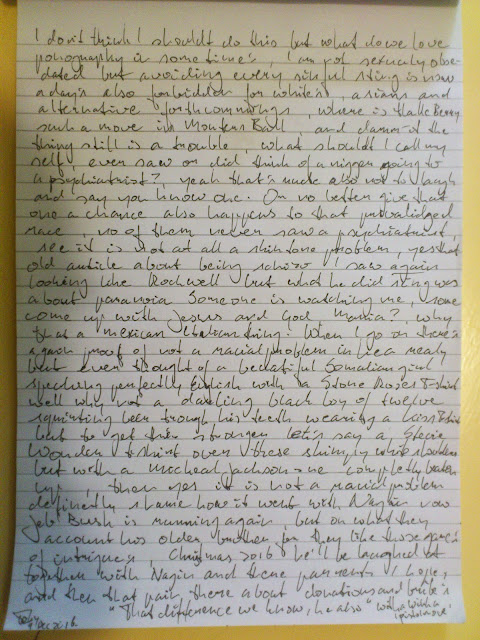 I don't think I should't do this but what do we love
pornography is some time's, I am not sexualy obse-
dated but avoiding every sinful sting is now
a day's also forbidden for white's, asians and
alternative forthcommings, where is Halle Berry
such a move in Monters Ball, and damn of the
thing still is a trouble, what should't I call my
self, ever saw or did think of a nigger going to
a psychiatrist?, yeah that's nuts also not to laugh
and say you know one. On no better give that
one a chance also happens to that
race, no of them never saw a psychiatrist,
see it is not at all a skin tone problem, yes that
old article about being schizo, I saw again
looking like Rockwell but what he did sing was
about paranoia Someone is watching me, some
come up with Jesus and God Mania?, why
that a mexican Italian thing. When I go on there's
again proof of not a racial problem in like a ready
but ever thought of a beautiful Somalian girl
speaking perfectly English with a Stone Roses T-shirt
well why not a darling black boy of twelve
squirting beer trough his teeth wearing a Kiss T-shirt
but to get them stronger let's say a Stevie
Wonder t-shirt over these skimpy white shoulders
but with a Micheal Jackson one completly beaten
up, then yes it is not a racial problem
definently shame how it went with Nagin now
Jeb Bush is running again, but on what they
account his older brother for they like those
of intrigue's, Christmas 2016 he'll be laughed at
together with Nagin and there parrents I hope,
and then that pair, there about donations and bribe's
"That difference we know, he also" with a
2016